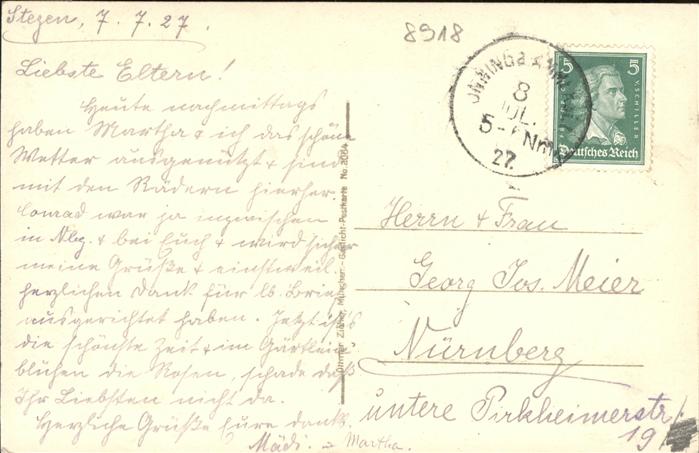 Stegen, 7.7.27.
Liebste Eltern!
Heute nachmittags
haben Martha & ich das schöne
Wetter ausgenützt & sind
mit den Rädern hierher.
Conrad war ja inzwischen
in Nbg. & bei Euch & wird sicher
meine Grüße & einstweil.
herzlichen Dank für lb. Brief
ausgerichtet haben. Jetzt ist's
die schönste Zeit & im Gärtlein
blühen die Rosen, schade daß
Ihr Liebsten nicht da.
Herzliche Grüße Eure dankb.
Mädi. u Martha.
8918
8
JUL.
5-6 Nm
27
5 5
V. SCHILLER
Deutsches Reich
München - Gesicht-Postkarte No. 2064
Herrn & Frau
Georg Jos. Meier
Nürnberg
untere Pirkheimerstr.
19